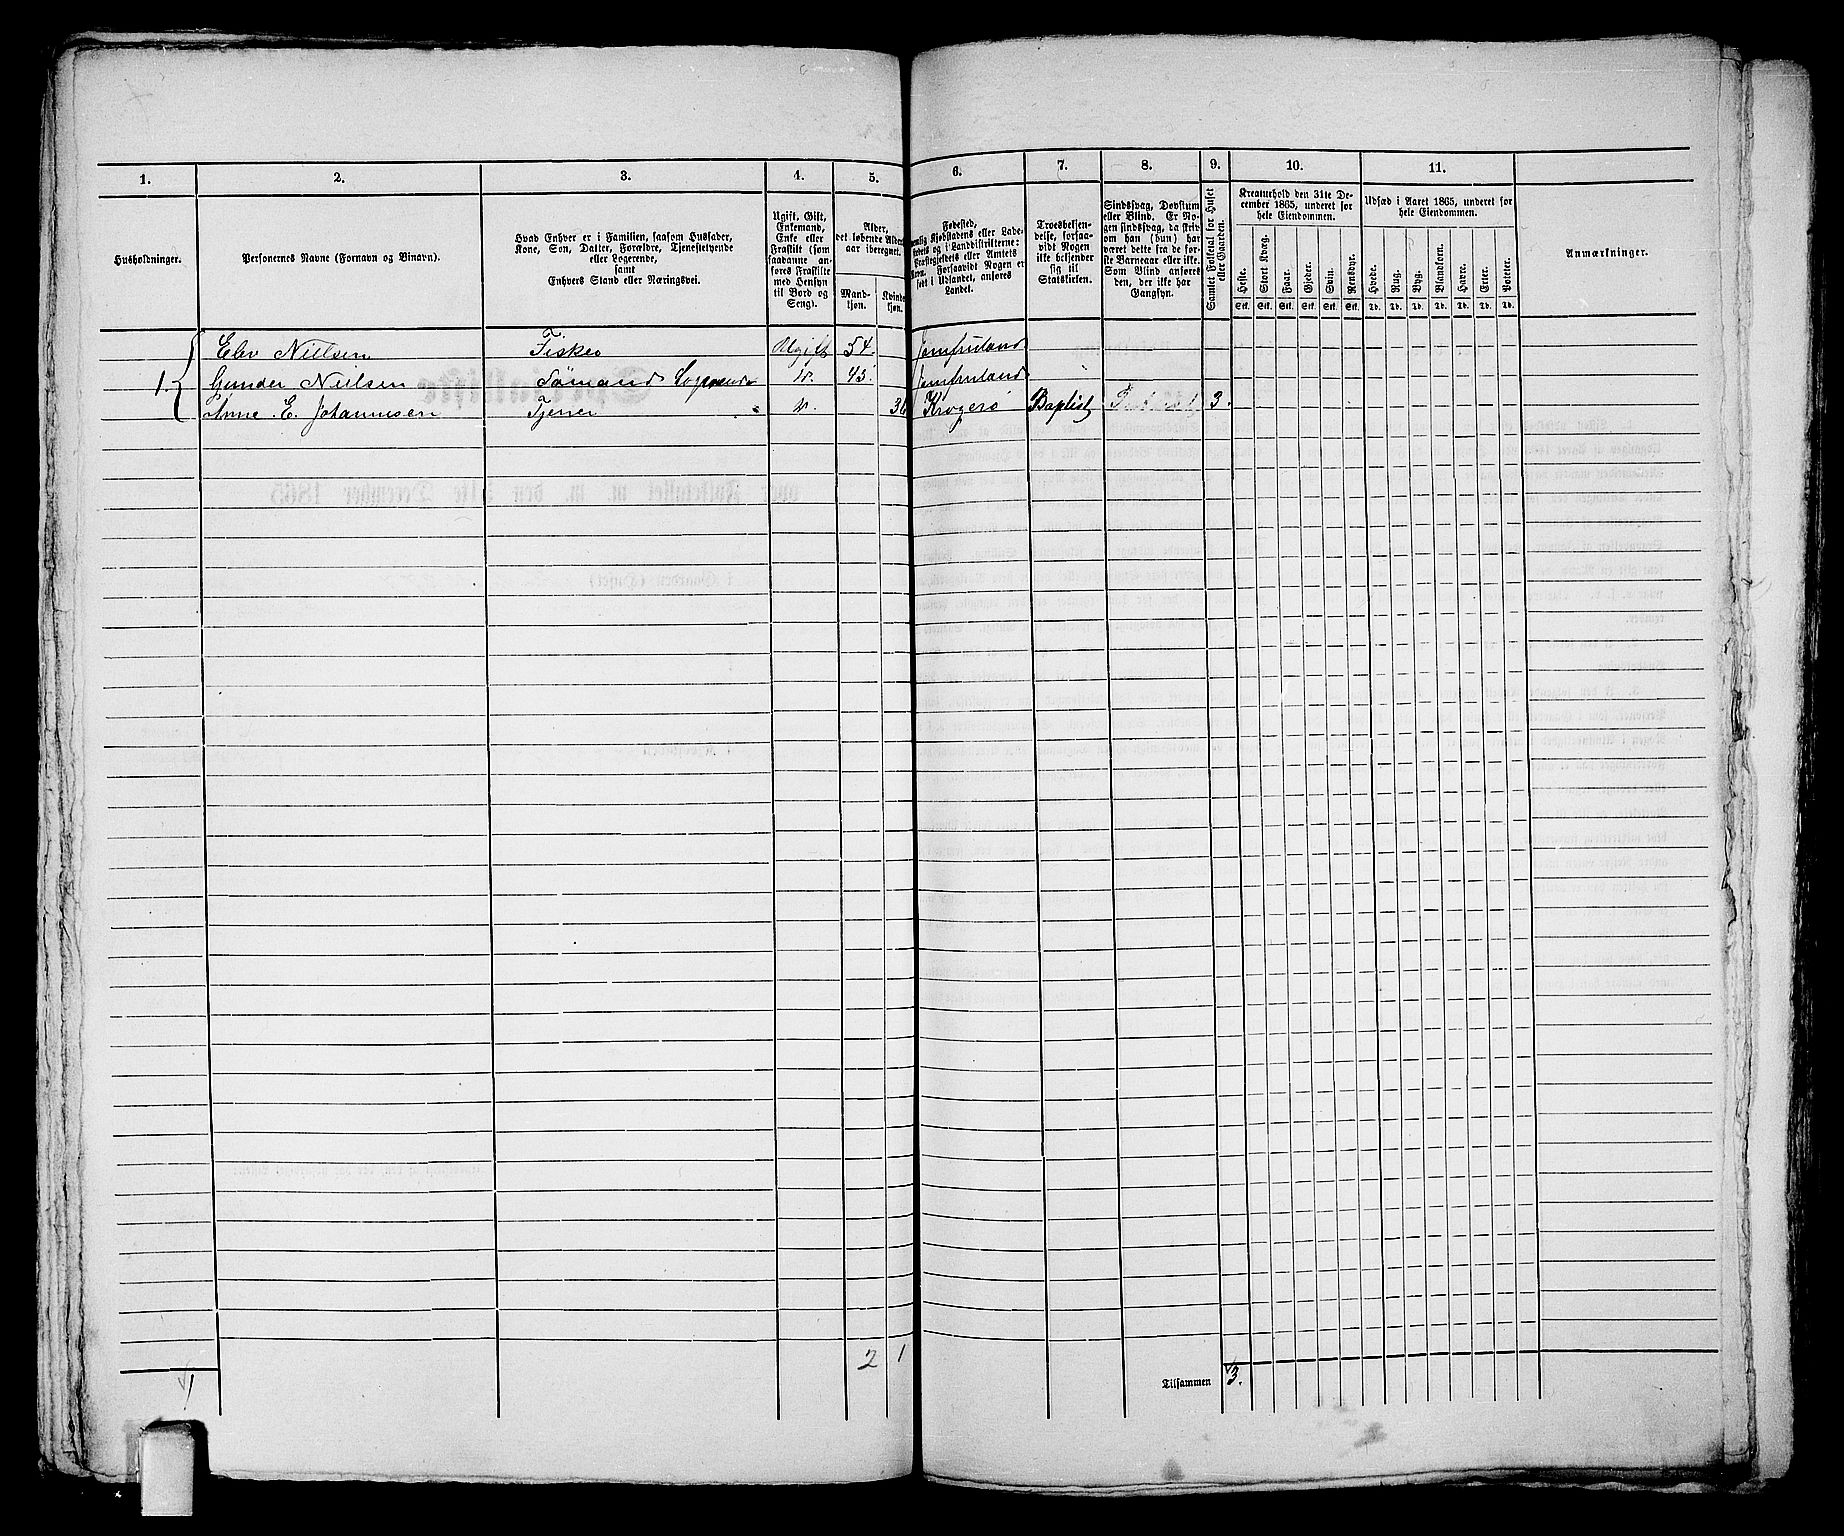 1. 2. 3. 4. 5. 6. 7. 8. 9. 10. 11.
Husholdninger.
Personernes Navne (Fornavn og Binavn).
Hvad Enhver er i Familien, saasom Husfader,
Kone, Søn, Datter, Forældre, Tjenestetyende
eller Logerende,
samt
Enhvers Stand eller Næringsvei.
Ugift, Gift,
Enkemand,
Enke eller
Fraskilt (som
saadanne an-
føres Fraskilte
med Hensyn
til Bord og
Seng).
Alder,
det løbende Alders-
aar iberegnet.
Mand-
kjøn.
Kvinde-
kjøn.
Fødested,
nemlig Kjøbstadens eller Lade-
stedets og i Landdistrikterne:
Præstegjeldets eller Amtets
Navn. Forsaavidt Nogen er
født i Udlandet, anføres
Landet.
Troesbekjen-
delse, forsaa-
vidt Nogen
ikke bekjender
sig til
Statskirken.
Sindssvag, Døvstum
eller Blind. Er No-
gen sindssvag, da skriv
om han (hun) har
været dette fra de før-
ste Barneaar eller ikke.
Som Blind anføres
den, der ikke har
Gangsyn.
Samlet Folketal for Huset
eller Gaarden.
Kreaturhold den 31te De-
cember 1865, underet for
hele Eiendommen.
Heste. Stort Kvæg. Faar. Gjeder. Svin. Rensdyr.
Stk. Stk. Stk. Stk. Stk. Stk.
Udsæd i Aaret 1865, underet for
hele Eiendommen.
Hvede. Rug. Byg. Blandkorn. Havre. Erter. Poteter.
Td. Td. Td. Td. Td. Td. Td.
Anmærkninger.
Elev Nielsen Fisker Ugift 54. Jomfruland
1. Gunder Nielsen Sømand Logerende " 45. Jomfruland
Anne E. Johannesen Tjener " 36 Kragerø Baptist 3.
2 1
Tilsammen 3.
1